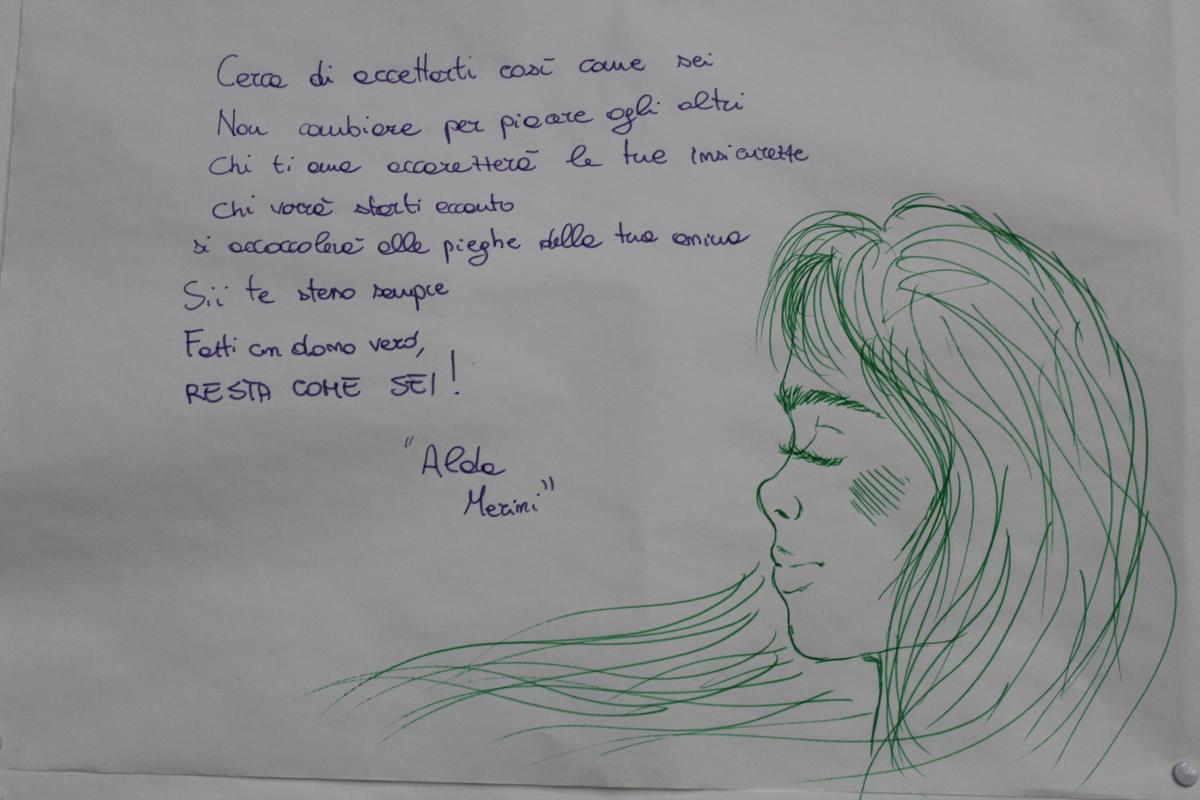 Cerca di accettarti così come sei
Non cambiare per piacare agli altri
Chi ti ama accaretterà le tue insicurette
Chi vorrà starti accanto
si accoccolerà alle pieghe della tua anima
Sii te stesso sempre
Fatti un dono vero,
RESTA COME SEI!
"Alda
Merini"